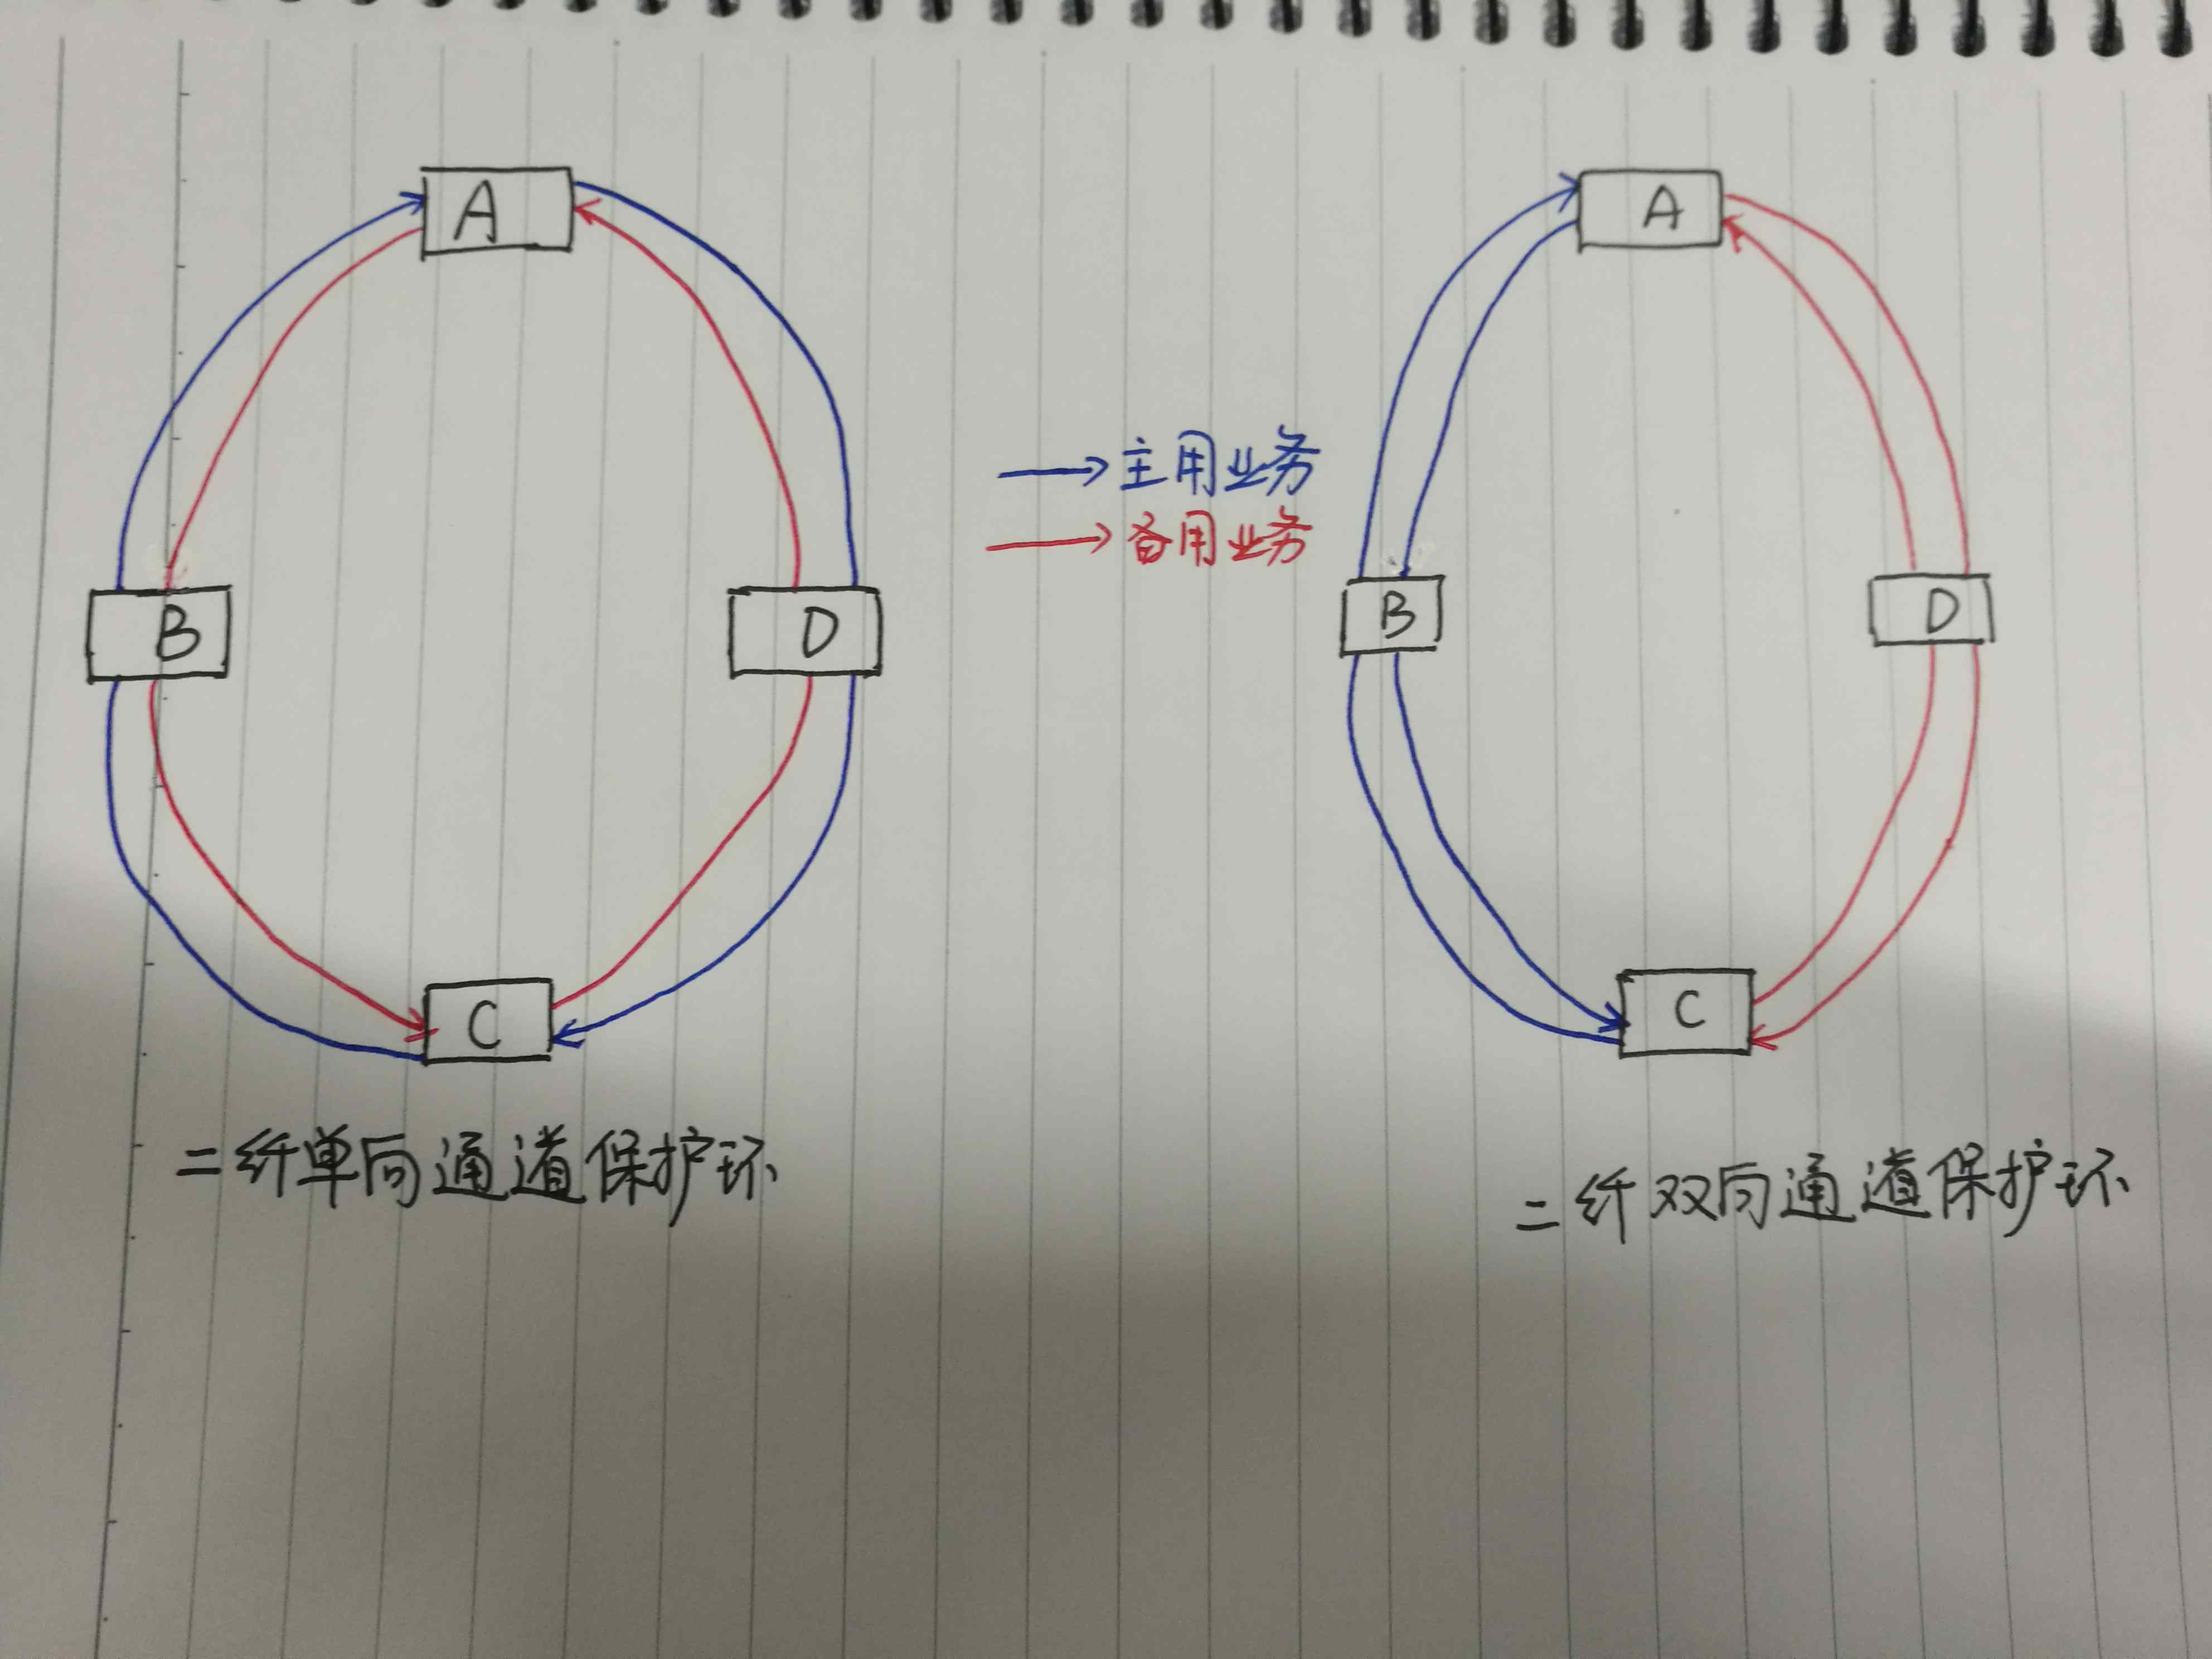 A
B
D
C
二纤单向通道保护环
主用业务
备用业务
A
B
D
C
二纤双向通道保护环